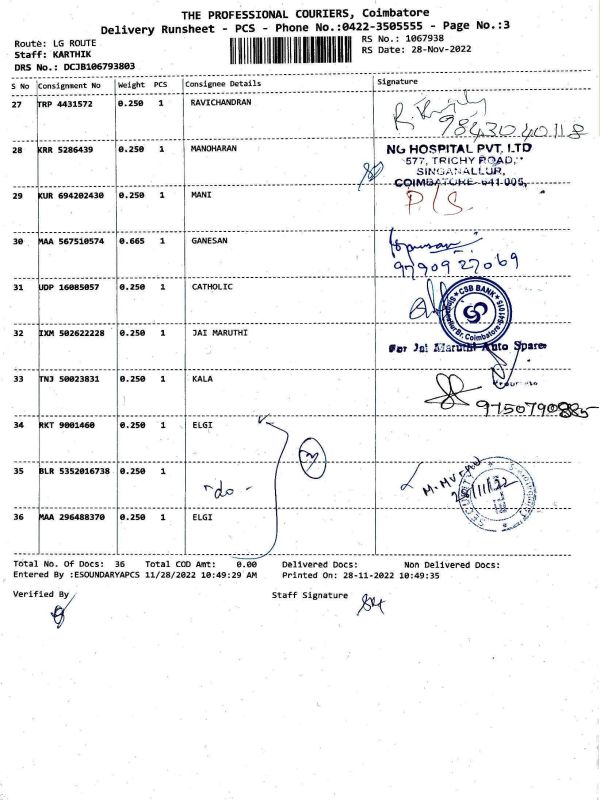 THE PROFESSIONAL COURIERS, Coimbatore
Delivery Runsheet - PCS - Phone No.:0422-3505555 - Page No.:3
Route: LG ROUTE
Staff: KARTHIK
DRS No.: DCJB106793803
RS No.: 1067938
RS Date: 28-Nov-2022
S No Consignment No Weight PCS Consignee Details Signature
27 TRP 4431572 0.250 1 RAVICHANDRAN
9843040118
28 KRR 5286439 0.250 1 MANOHARAN
NG HOSPITAL PVT. LTD
577, TRICHY ROAD,
SINGANALLUR,
COIMBATORE-641 005,
29 KUR 694202430 0.250 1 MANI
P/S.
30 MAA 567510574 0.665 1 GANESAN
9790927069
31 UDP 16085057 0.250 1 CATHOLIC
CSB BANK
32 IXM 502622228 0.250 1 JAI MARUTHI
For Jai Maruthi Auto Spares
33 TNJ 50023831 0.250 1 KALA
9750790885
34 RKT 9001460 0.250 1 ELGI
3
35 BLR 5352016738 0.250 1
- do -
M. MURAU
28/11/22
SECURITY
36 MAA 296488370 0.250 1 ELGI
Total No. Of Docs: 36 Total COD Amt: 0.00 Delivered Docs: Non Delivered Docs:
Entered By :ESOUNDARYAPCS 11/28/2022 10:49:29 AM Printed On: 28-11-2022 10:49:35
Verified By Staff Signature